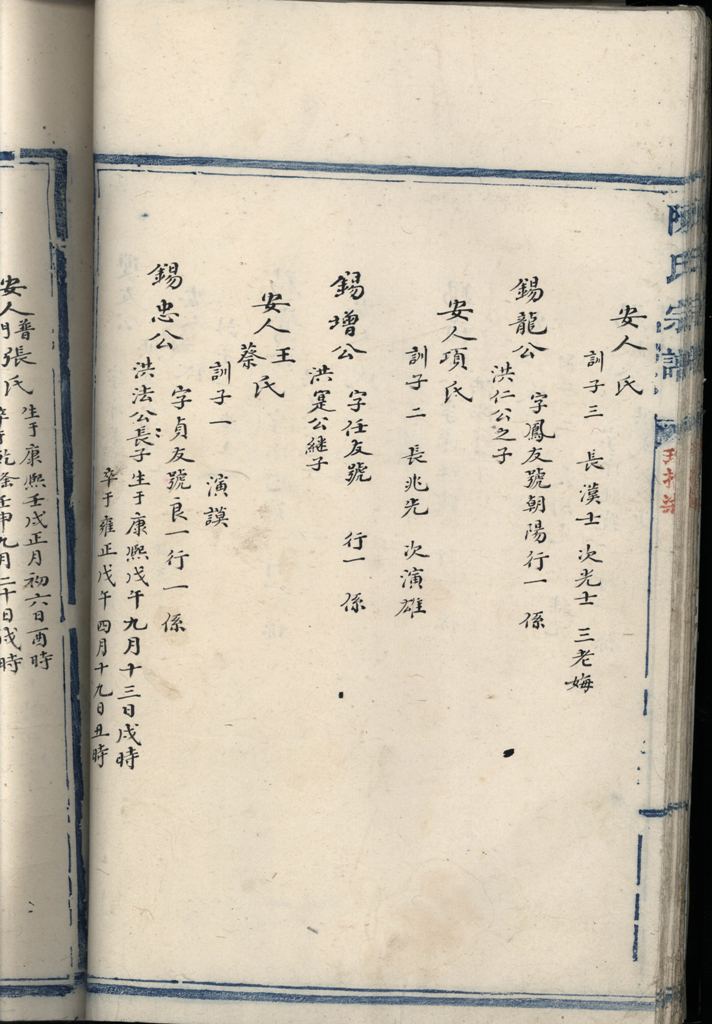 陳氏宗譜
安人 氏
訓子三 長漢士 次光士 三老娒
錫龍公 字鳳友號朝陽行一 係
洪仁公之子
安人項氏
訓子二 長兆光 次演雄
錫增公 字任友號 行一 係
洪寔公継子
安人王氏
蔡
訓子一 演謨
錫忠公 字貞友號良一行一 係
洪法公長子 生于康熙戊午九月十三日戌時
卒于雍正戊午四月十九日丑時
安人 普張氏 生于康熙壬戌正月初六日酉時
門 卒于乾隆壬申九月二十日戌時